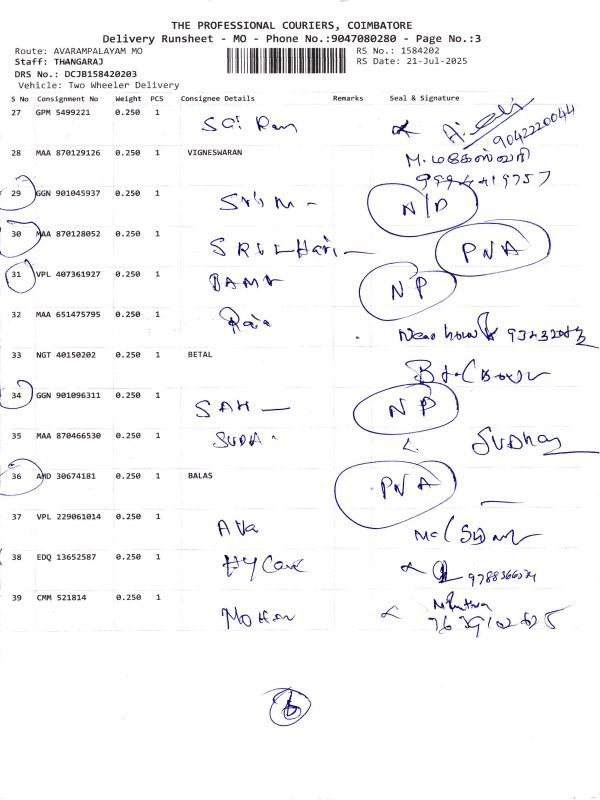 THE PROFESSIONAL COURIERS, COIMBATORE
Delivery Runsheet - MO - Phone No.:9047080280 - Page No.:3
Route: AVARAMPALAYAM MO RS No.: 1584202
Staff: THANGARAJ RS Date: 21-Jul-2025
DRS No.: DCJB158420203
Vehicle: Two Wheeler Delivery
S No Consignment No Weight PCS Consignee Details Remarks Seal & Signature
27 GPM 5499221 0.250 1 Sai Ram 9042220044
28 MAA 870129126 0.250 1 VIGNESWARAN M. மகேஸ்வரி
29 GGN 901045937 0.250 1 N/D
30 MAA 870128052 0.250 1 SRI Hari PNA
31 VPL 407361927 0.250 1 NP
32 MAA 651475795 0.250 1 Raja
33 NGT 40150202 0.250 1 BETAL
34 GGN 901096311 0.250 1 SAH NP
35 MAA 870466530 0.250 1 SUDA
36 AMD 30674181 0.250 1 BALAS PNA
37 VPL 229061014 0.250 1
38 EDQ 13652587 0.250 1 HY Care
39 CMM 521814 0.250 1 Mohan
6